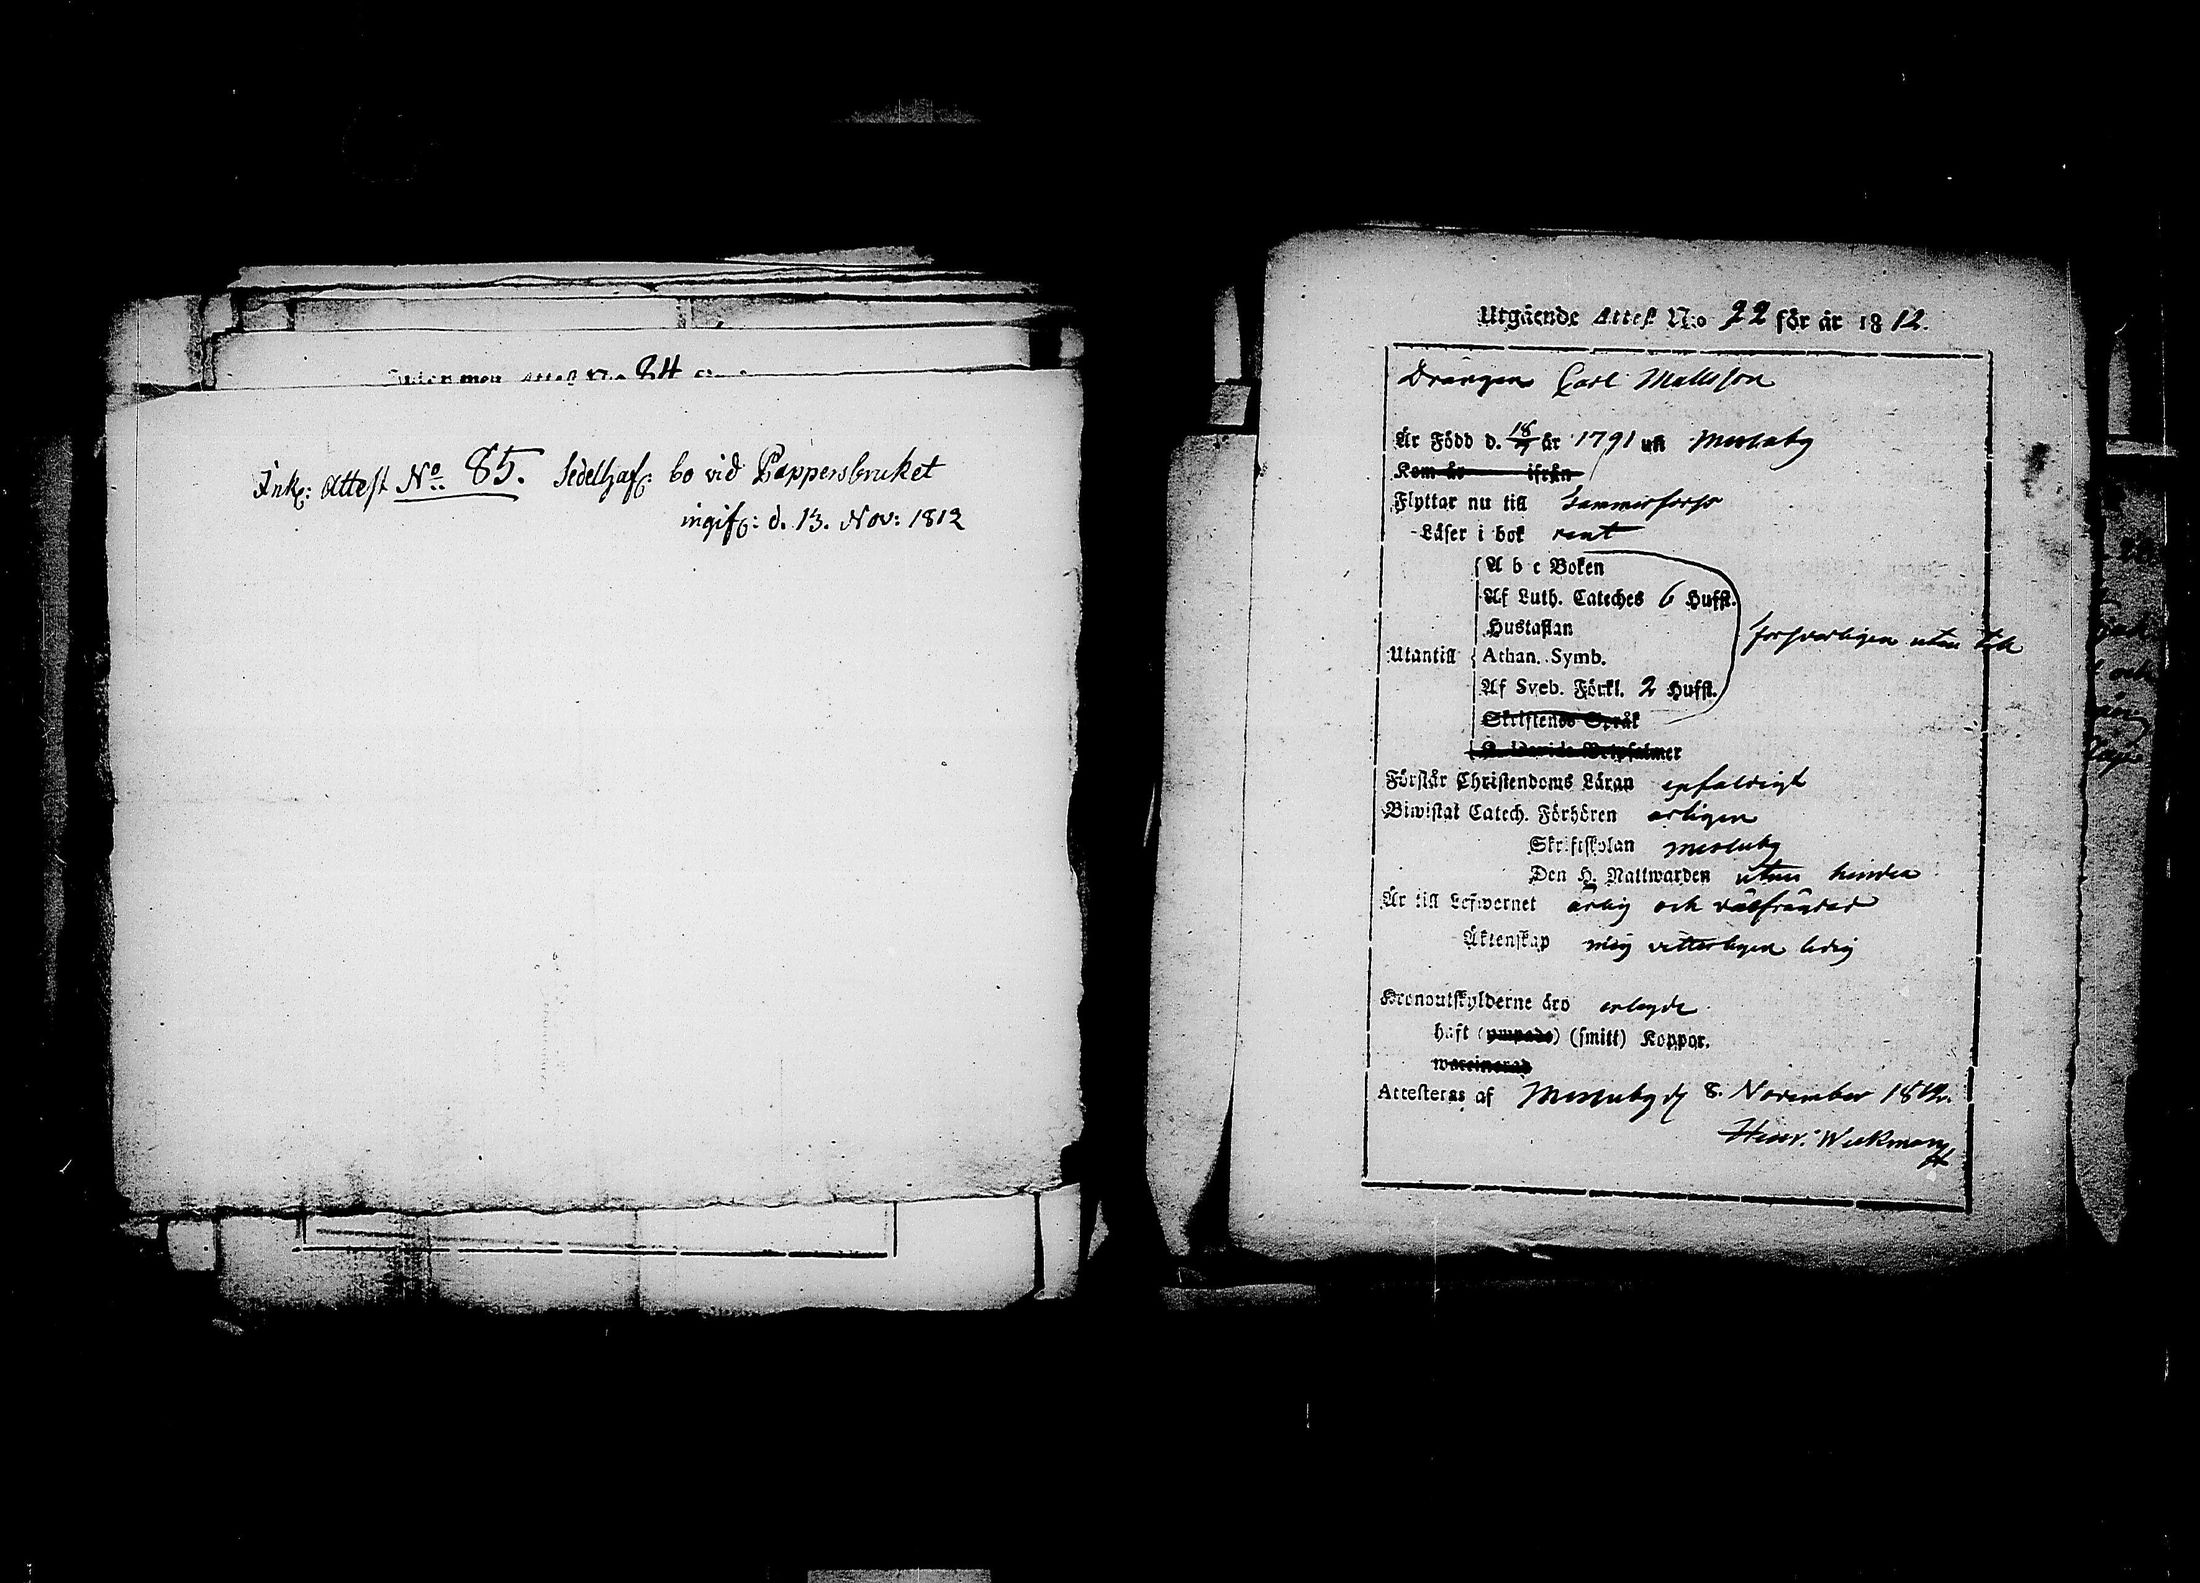 Inkommen Attest N:o 84
Ink: Attest No 85. Sedelhaf: bo vid Pappersbruket
ingif: d. 13. Nov: 1812
Utgående Attest N:o 22 för år 1812.
Drängen Carl Mattsson
Är Född d. 18/7 år 1791 uti Messuby
Kom år ifrån
Flyttar nu till Tammerfors
Läser i bok rent
A b c Boken
Af Luth. Cateches 6 Hufst.
Hustaflan
Utantill Athan. Symb.
Af Sveb. Förkl. 2 Hufst.
försvarligen utan till
Skriftenes Språk
K. Davids Botpsalmer
Förstår Christendoms Läran enfaldigt
Biwistat Catech. Förhören årligen
Skriftskolan Messuby
Den H. Nattwarden utan hinder
Är till Lefwernet ärlig och välfrägdad
Äktenskap mig vetterligen ledig
Kronoutskylderne äro erlagde
haft (ympade) (smitt) Koppor.
waccinerad
Attesteras af Messuby d 8. November 1812.
Henr. Weckman